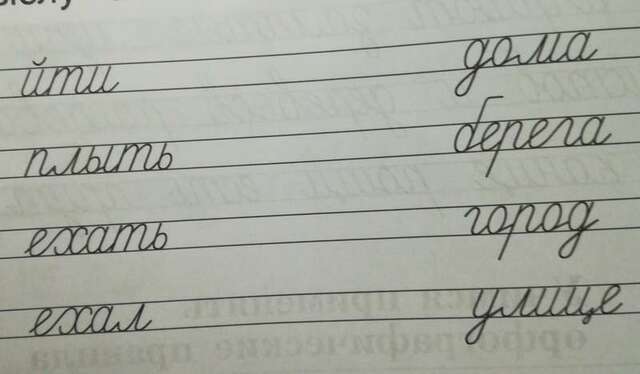 йти дома
плыть берега
ехать город
ехал улице